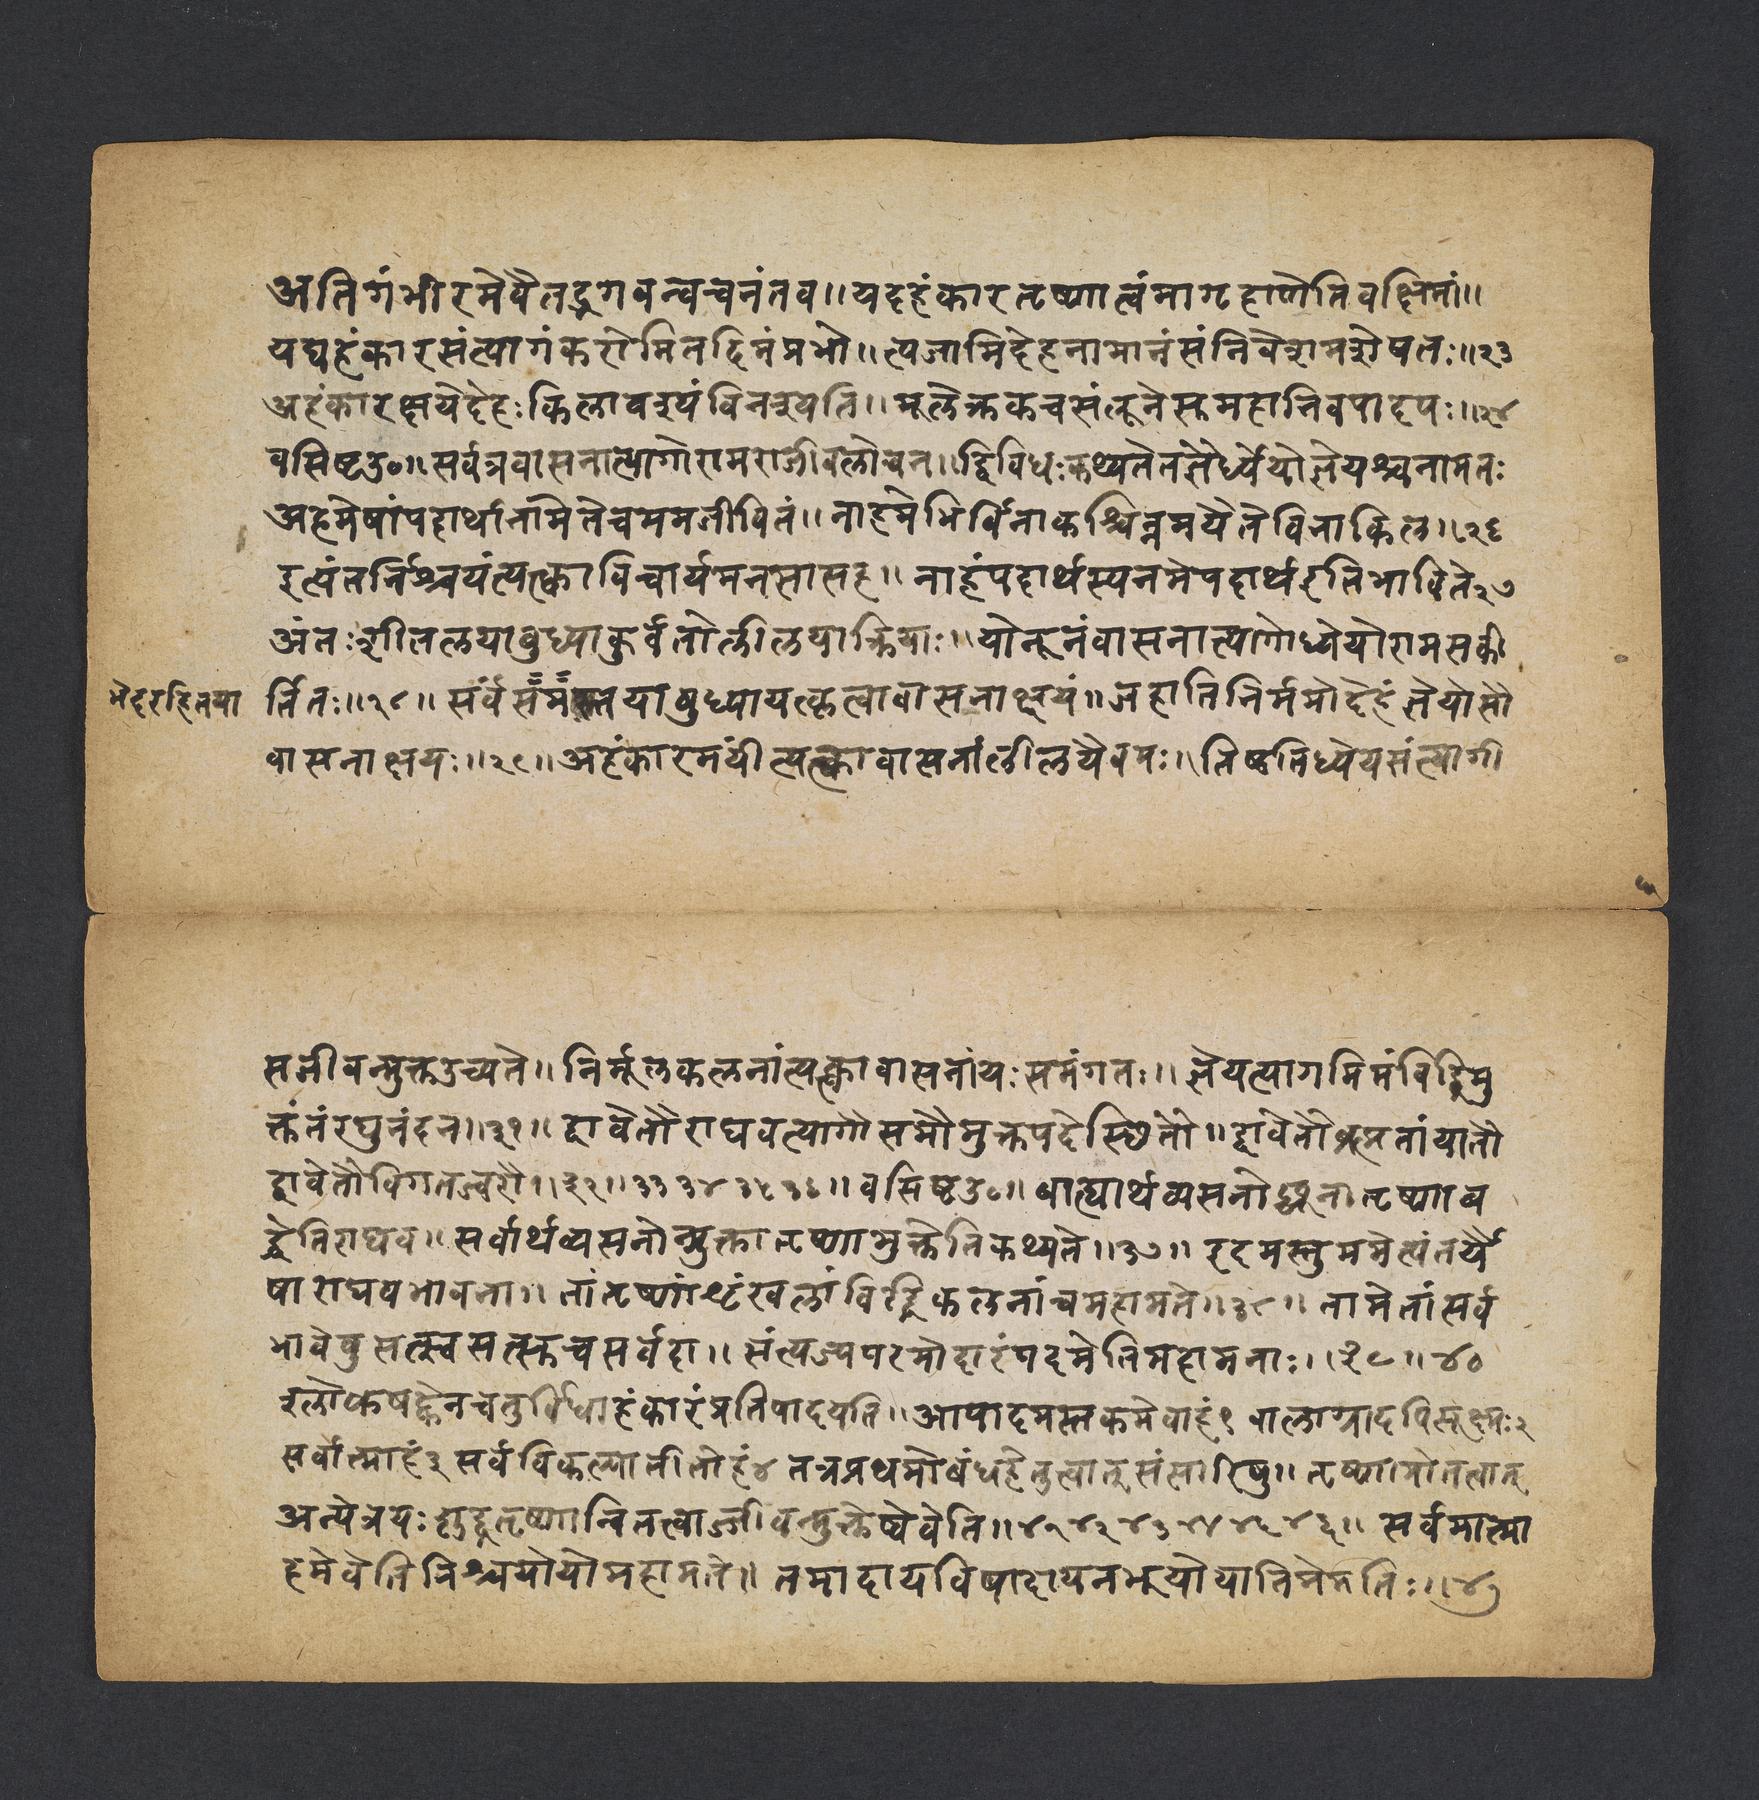 अतिगंभीरमेवैतद्भगवन्वचनंतव॥यदहंकारतृष्णात्वंमागृहाणेतिवक्षिमां॥
यद्यहंकारसंत्यागंकरोमितदिमंप्रभो॥त्यजामिदेहनामानंसंनिवेशमशेषतः॥२३
अहंकारक्षयेदेहःकिलावश्यंविनश्यति॥मूलेक्रकचसंलूनेसुमहानिवपादपः॥२४
वसिष्टउ०॥सर्वत्रवासनात्यागोरामराजीवलोचन॥द्विविधःकथ्यतेतज्ञैर्ध्येयोज्ञेयश्चनामतः
अहमेषांपदार्थानामेतेचममजीवितं॥नाहमेभिर्विनाकश्चिन्नमयैतेविनाकिल॥२६
इत्यंतर्निश्चयंत्यत्क्काविचार्यमनसासह॥नाहंपदार्थस्यनमेपदार्थइतिभाविते२७
अंतःशीतलयाबुध्याकुर्वतोलीलयाक्रियाः॥योनूनंवासनात्यागोध्येयोरामसकी
भेदरहितया
र्तितः॥२८॥सर्वंसमतयाबुध्यायत्कृत्वावासनाक्षयं॥जहातिनिर्ममोदेहंज्ञेयोसौ
वासनाक्षयः॥२९॥अहंकारमयींत्यत्क्कावासनांलीलयैवयः॥तिष्ठतिध्येयसंत्यागी
सजीवन्मुक्तउच्यते॥निर्मूलकलनांत्यत्क्कावासनांयःसमंगतः॥ज्ञेयत्यागमिमंविद्धिमु
क्तंतंरघुनंदन॥३१॥द्वावेतौराघवत्यागौसमौमुक्तपदेस्थितौ॥द्वावेतौब्रह्मतांयातौ
द्वावेतौविगतज्वरौ॥३२॥३३३४३५३६॥वसिष्टउ०॥बाह्यार्थव्यसनोछूनातृष्णाब
द्धेतिराघव॥सर्वार्थव्यसनोन्मुक्तातृष्णामुक्तेतिकथ्यते॥३७॥इदमस्तुममेत्यंतर्यै
षाराघवभावना॥तांतृष्णांशृंखलांविद्धिकलनांचमहामते॥३८॥तामेतांसर्व
भावेषुसत्स्वसत्सुचसर्वदा॥संत्यज्यपरमोदारंपदमेतिमहामनाः॥३९॥४०
श्लोकषट्केनचतुर्विधाहंकारंप्रतिपादयति॥आपादमस्तकमेवाहं१बालाग्रादपिसूक्ष्मः२
सर्वात्माहं३सर्वविकल्पातीतोहं४तत्रप्रथमोबंधहेतुत्वात्संसारिषु॥तृष्णामोतत्वात्
अन्येत्रयःशुद्धतृष्णान्वितत्वाज्जीवन्मुक्तेष्वेवेति॥४१४२४३४४४५४६॥सर्वमात्मा
हमेवेतिनिश्चयोयोमहामते॥तमादायविषादायनभूयोयातिमेमतिः॥४७